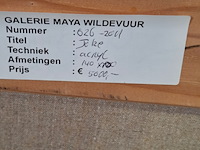 GALERIE MAYA WILDEVUUR
Nummer : 626-2011
Titel : Jelze
Techniek : acryl
Afmetingen : 140 x 100
Prijs : € 5000,-